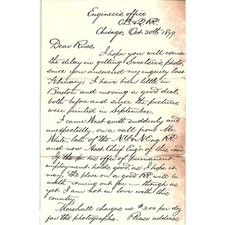 Engineer's office
C.B.&Q. R.R.
Chicago, Oct. 20th 1879
Dear Russ,
I hope you will excuse
the delay in getting Sweetser's photo,
since you answered my inquiry last
February. I have been little in
Boston and moving a good deal
both before and since the pictures
were printed in September.
I came West quite suddenly and
unexpectedly, on a call from Mr.
White, late of the N.Y. & N.E. RR
and now Asst. Chief Eng'r of this road
his offer of permanent
employment holds good, as I hope it
may, the place on a good RR will be
worth coming out for — though as
yet I am not in love with this
country.
Marshall charges us $2.00 per
for the photographs. Please address